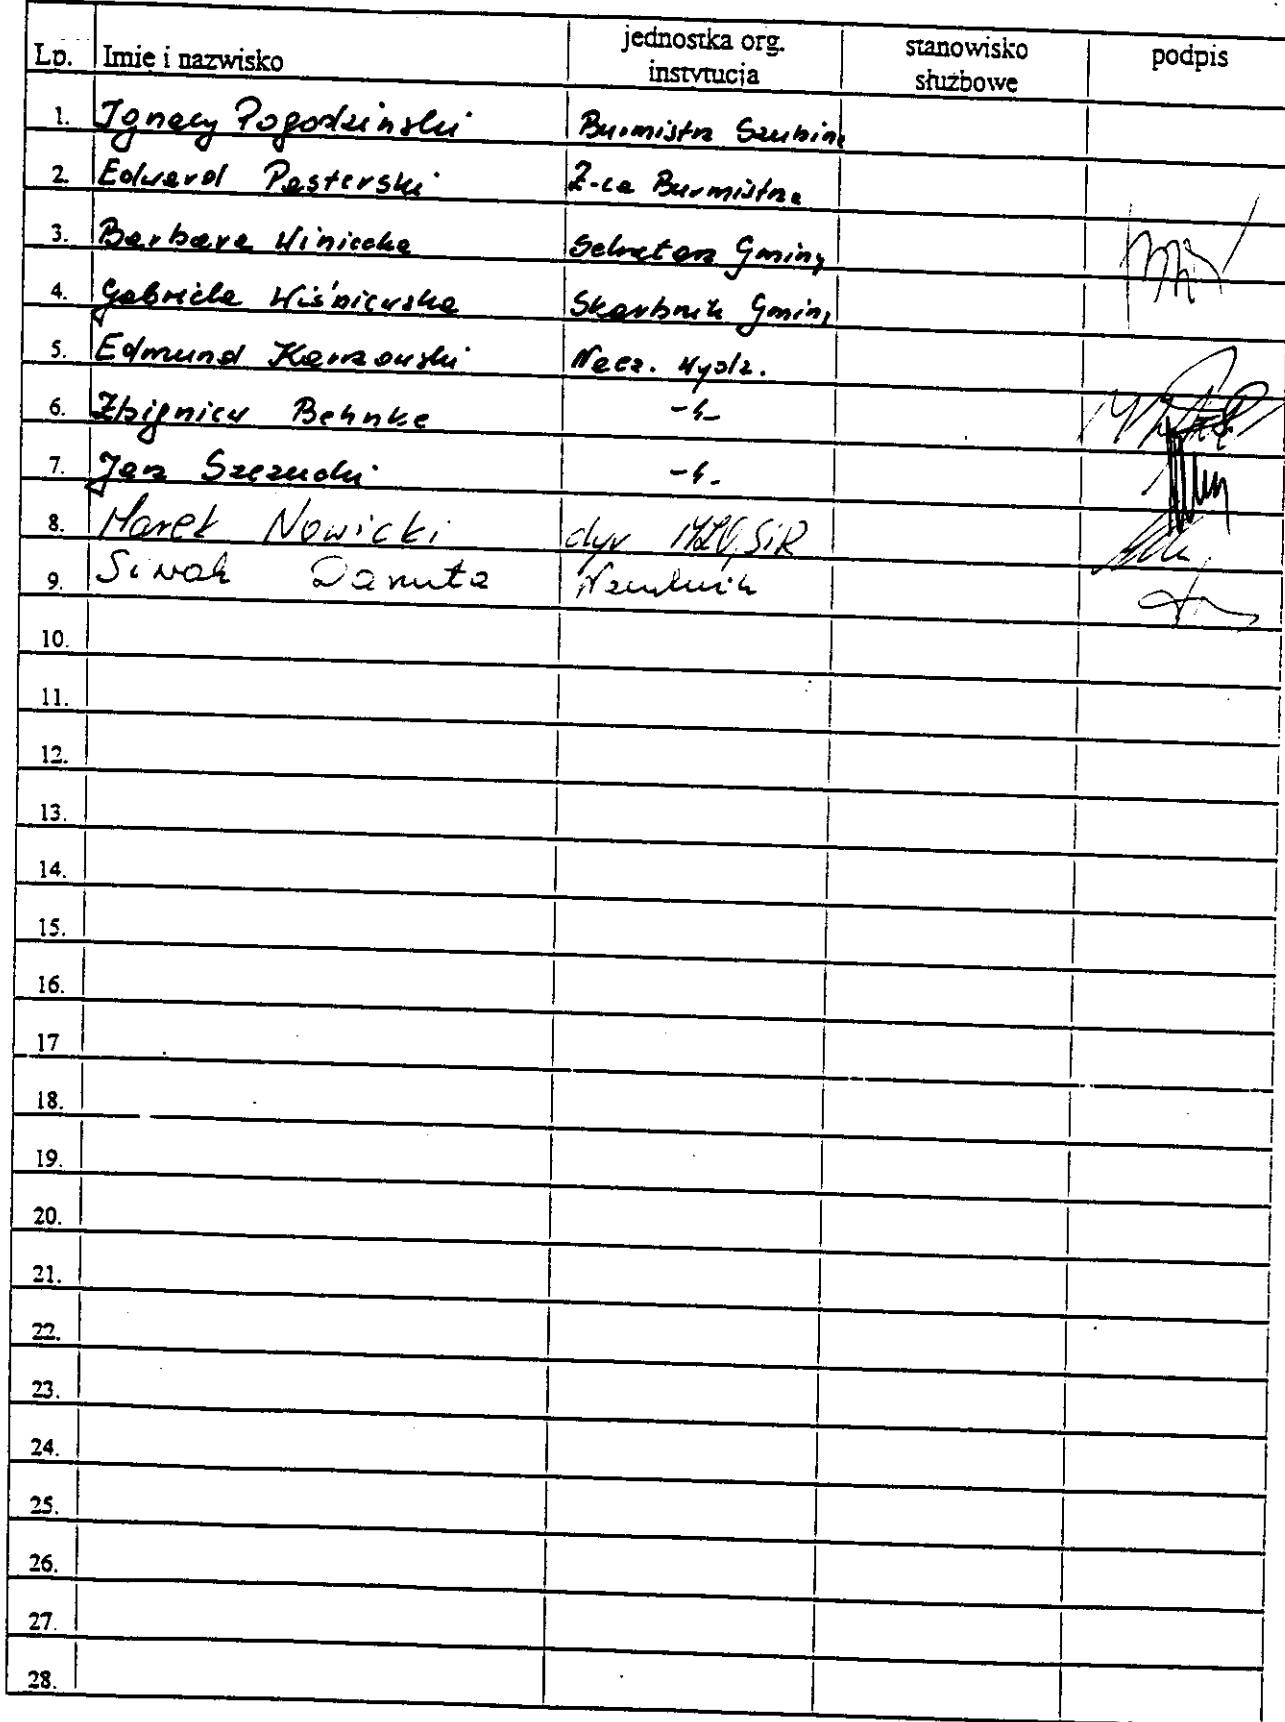 Lp. Imię i nazwisko jednostka org. instytucja stanowisko służbowe podpis
1. Ignacy Pogodziński Burmistrz Szubina
2. Edward Pasterski Z-ca Burmistrza
3. Barbara Winiecka Sekretarz Gminy
4. Gabriela Wiśniewska Skarbnik Gminy
5. Edmund Nacz. Wydz.
6. Zbigniew Behnke -"-
7. Jan Szczucki -"-
8. Marek Nowicki dyr
9. Siwak Danuta
10.
11.
12.
13.
14.
15.
16.
17
18.
19.
20.
21.
22.
23.
24.
25.
26.
27.
28.